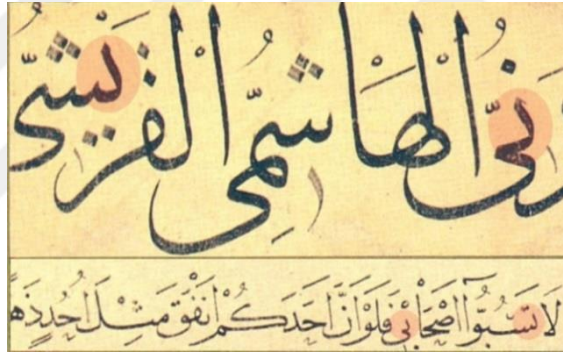 دنىّ الهاشمىّ القريشىّ
لَا تَسُبُّوا اَصْحَابِى فَلَوْ اَنَّ اَحَدَكُمْ اَنْفَقَ مِثْلَ اُحُدٍ ذَهَ